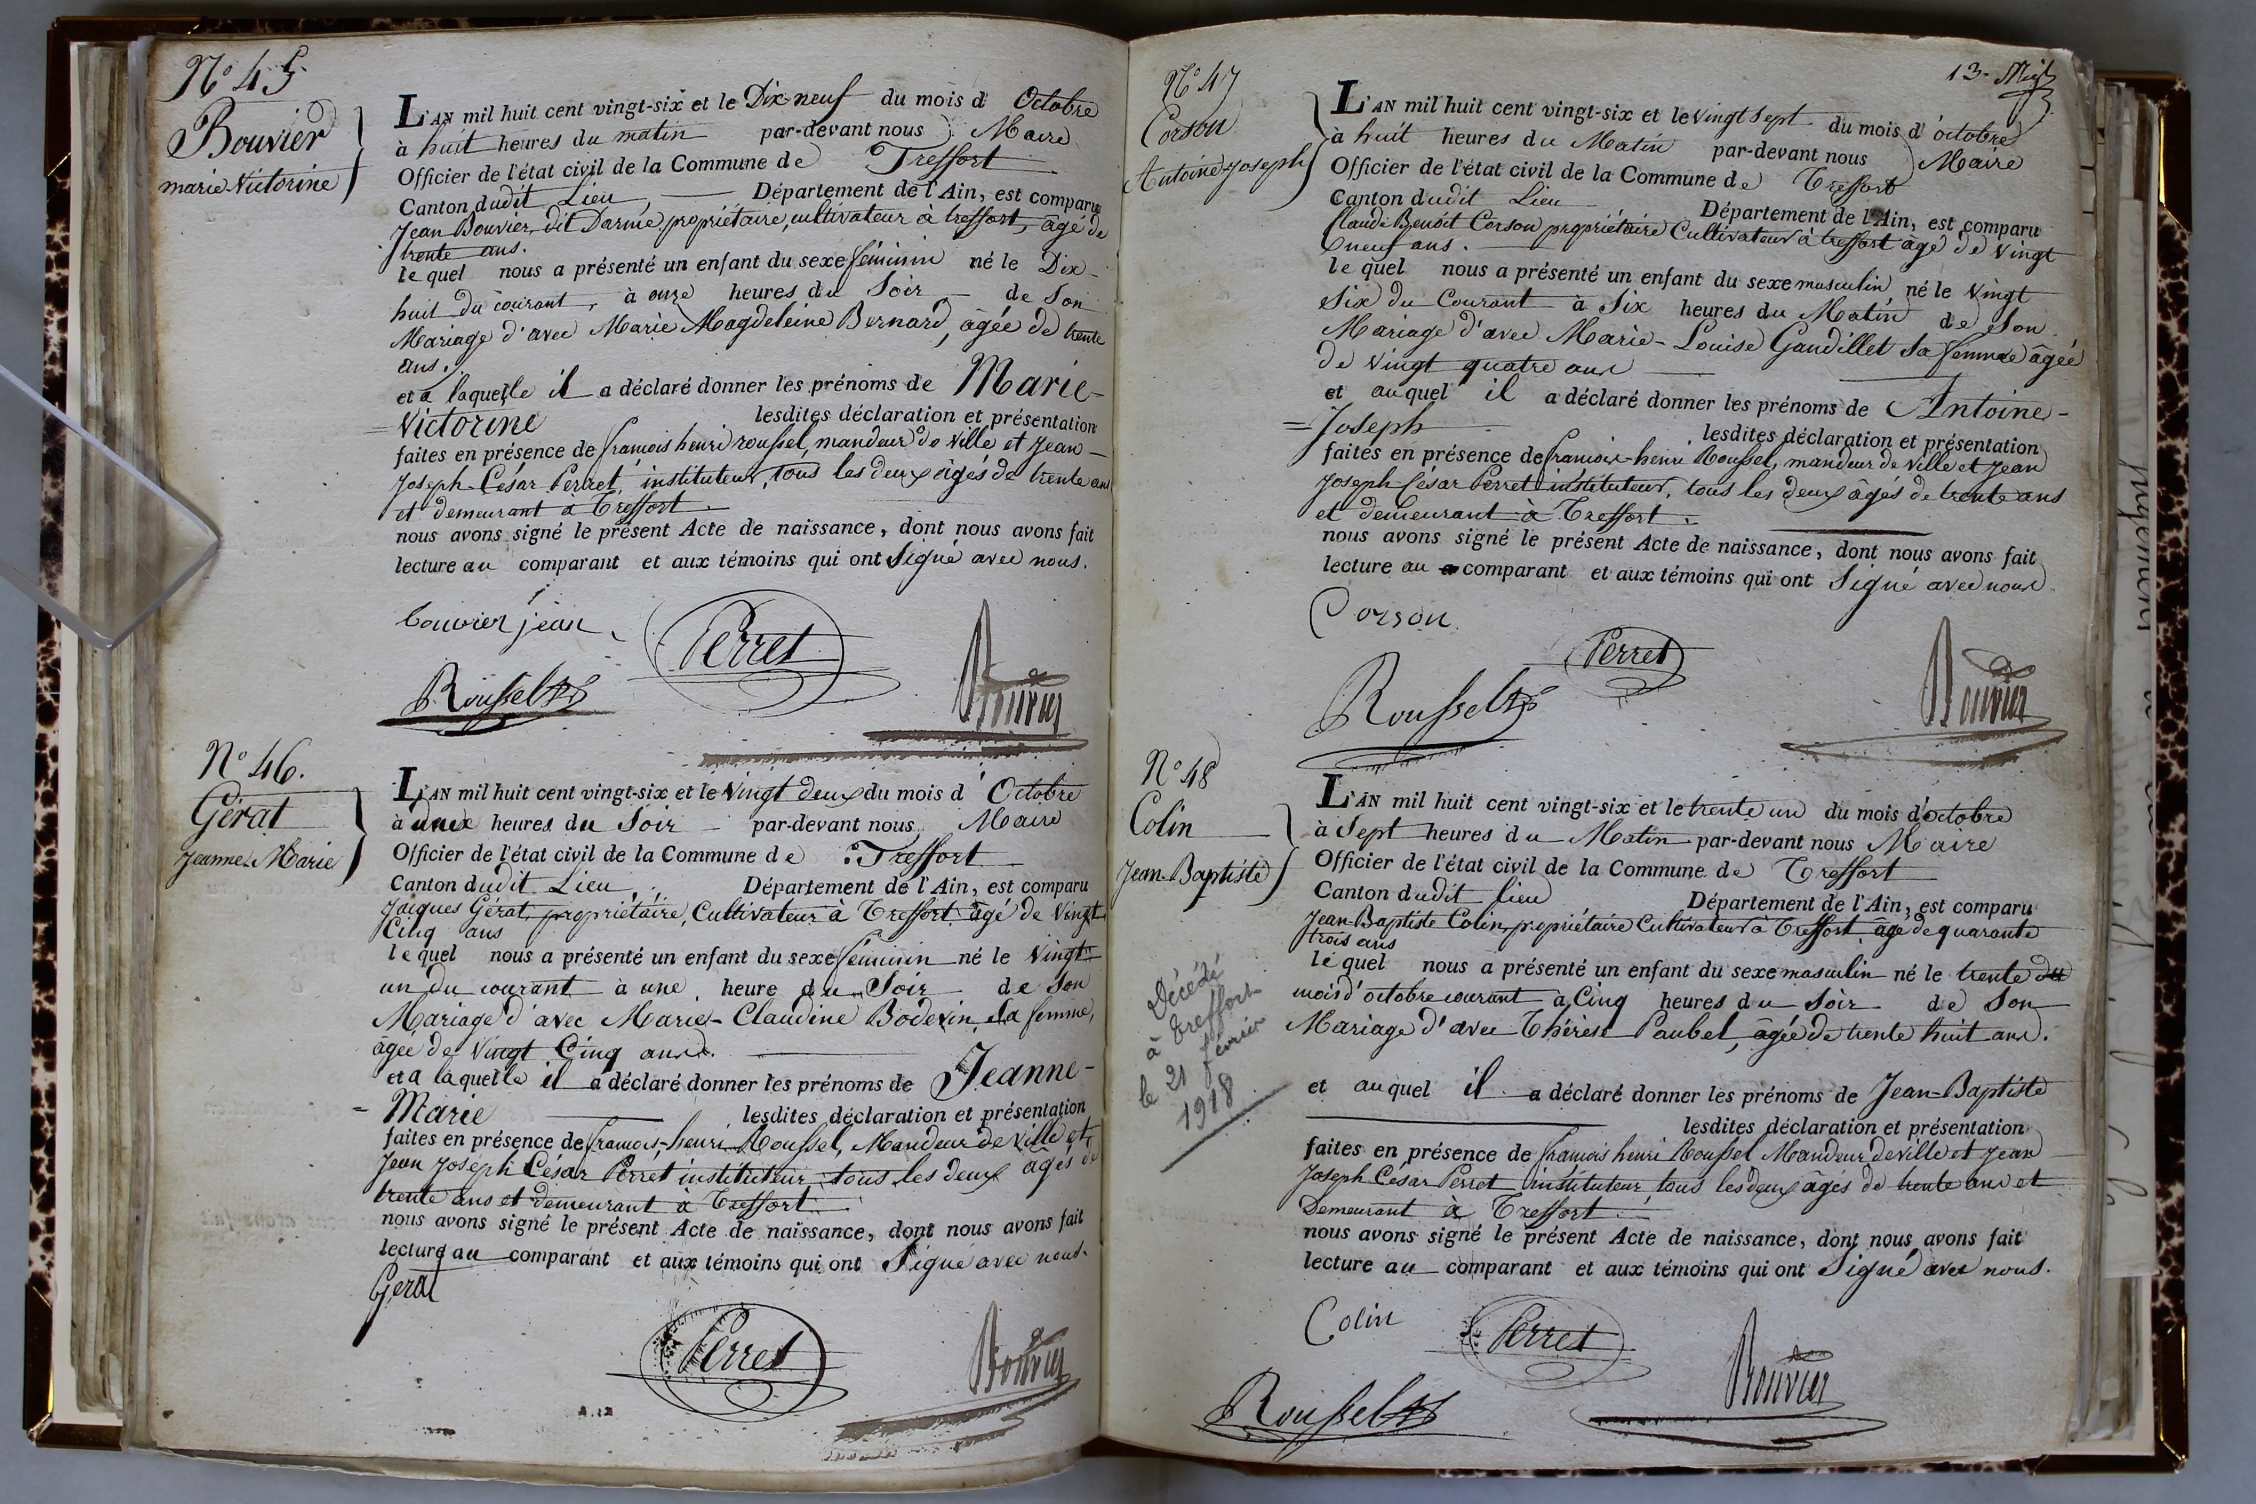 N° 45
Bouvier
marie Victorine
L'AN mil huit cent vingt-six et le Dix-neuf du mois d' Octobre
à huit heures du matin par-devant nous Maire
Officier de l'état civil de la Commune de Treffort
Canton dudit Lieu, Département de l'Ain, est comparu
Jean Bouvier, dit Darme, propriétaire, cultivateur à treffort, âgé de
trente ans.
le quel nous a présenté un enfant du sexe féminin né le Dix-
huit du courant, à onze heures du Soir de Son
Mariage d'avec Marie Magdeleine Bernard, âgée de trente
ans.
et à laquelle il a déclaré donner les prénoms de Marie-
= Victorine lesdites déclaration et présentation
faites en présence de francois henri roussel, mandeur de ville et Jean-
Joseph César Perret, instituteur, tous les deux âgés de trente ans
et demeurant à Treffort.
nous avons signé le présent Acte de naissance, dont nous avons fait
lecture au comparant et aux témoins qui ont Signé avec nous.
bouvier jean
Perret
Roussel
Bouvier
N° 46.
Gérat
Jeanne-Marie
L'AN mil huit cent vingt-six et le Vingt deux du mois d' Octobre
à heures du Soir par-devant nous Maire
Officier de l'état civil de la Commune de Treffort
Canton dudit Lieu, Département de l'Ain, est comparu
Jacques Gérat, propriétaire, Cultivateur à Treffort âgé de Vingt
Cinq ans
le quel nous a présenté un enfant du sexe féminin né le Vingt-
un du courant à une heure du Soir de Son
Mariage d'avec Marie-Claudine Bodevin, Sa femme,
âgée de Vingt Cinq ans.
et a laquelle il a déclaré donner les prénoms de Jeanne-
= Marie lesdites déclaration et présentation
faites en présence de francois-henri Roussel, Mandeur de Ville et
Jean Joseph César Perret instituteur, tous les deux âgés de
trente ans et demeurant à Treffort.
nous avons signé le présent Acte de naissance, dont nous avons fait
lecture au comparant et aux témoins qui ont Signé avec nous.
Gerat
Perret
Bouvier
13-
N° 47
Corson
Antoine-Joseph
L'AN mil huit cent vingt-six et le vingt sept du mois d' octobre
à huit heures du Matin par-devant nous Maire
Officier de l'état civil de la Commune de Treffort
Canton dudit Lieu Département de l'Ain, est comparu
Claude Benoit Corson propriétaire Cultivateur à treffort âgé de Vingt
neuf ans.
le quel nous a présenté un enfant du sexe masculin né le Vingt
Six du Courant à Six heures du Matin de Son
Mariage d'avec Marie-Louise Gaudillet Sa femme âgée
de Vingt quatre ans
et auquel il a déclaré donner les prénoms de Antoine-
= Joseph lesdites déclaration et présentation
faites en présence de francois-henri Roussel, mandeur de ville et Jean
Joseph César Perret instituteur, tous les deux âgés de trente ans
et demeurant à Treffort.
nous avons signé le présent Acte de naissance, dont nous avons fait
lecture au comparant et aux témoins qui ont Signé avec nous
Corson
Perret
Roussel
Bouvier
N° 48
Colin
Jean-Baptiste
L'AN mil huit cent vingt-six et le trente un du mois d'octobre
à Sept heures du Matin par-devant nous Maire
Officier de l'état civil de la Commune de Treffort
Canton dudit lieu Département de l'Ain, est comparu
Jean-Baptiste Colin, propriétaire Cultivateur à Treffort âgé de quarante
trois ans
le quel nous a présenté un enfant du sexe masculin né le trente du
mois d'octobre courant à Cinq heures du Soir de Son
Mariage d'avec Thérèse Paubel, âgée de trente huit ans.
et auquel il a déclaré donner les prénoms de Jean-Baptiste
lesdites déclaration et présentation
faites en présence de francois henri Roussel Mandeur de Ville et Jean
Joseph César Perret instituteur, tous les deux âgés de trente ans et
Demeurant à Treffort.
nous avons signé le présent Acte de naissance, dont nous avons fait
lecture au comparant et aux témoins qui ont Signé avec nous.
Colin
Perret
Bouvier
Roussel
Décédé
à Treffort
le 21 février
1918